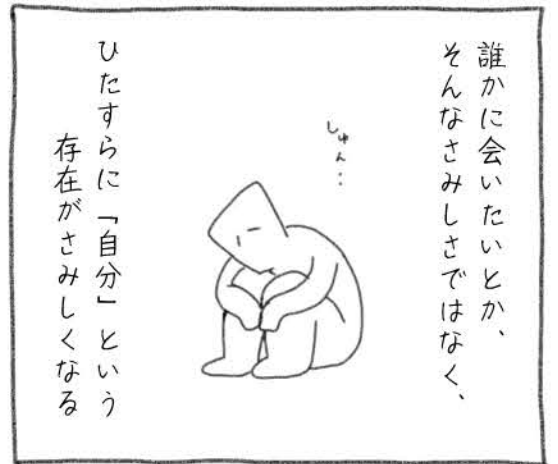 誰かに会いたいとか、
そんなさみしさではなく、
しゅん…
ひたすらに「自分」という
存在がさみしくなる